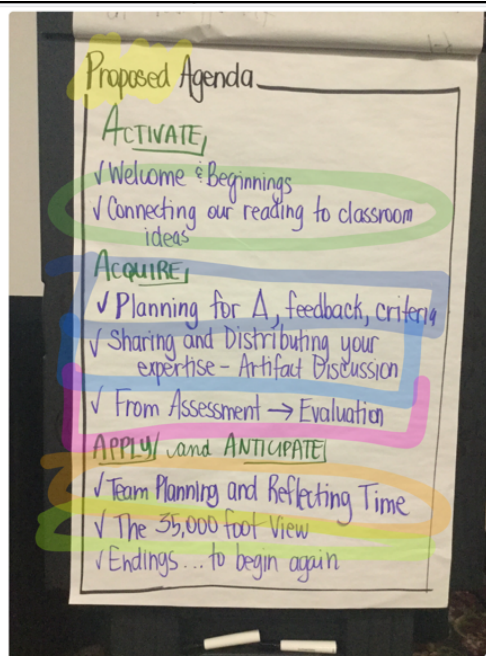 Proposed Agenda
ACTIVATE
√ Welcome & Beginnings
√ Connecting our reading to classroom
ideas
ACQUIRE
√ Planning for Δ, feedback, criteria
√ Sharing and Distributing your
expertise - Artifact Discussion
√ From Assessment → Evaluation
APPLY and ANTICIPATE
√ Team Planning and Reflecting Time
√ The 35,000 foot View
√ Endings... to begin again